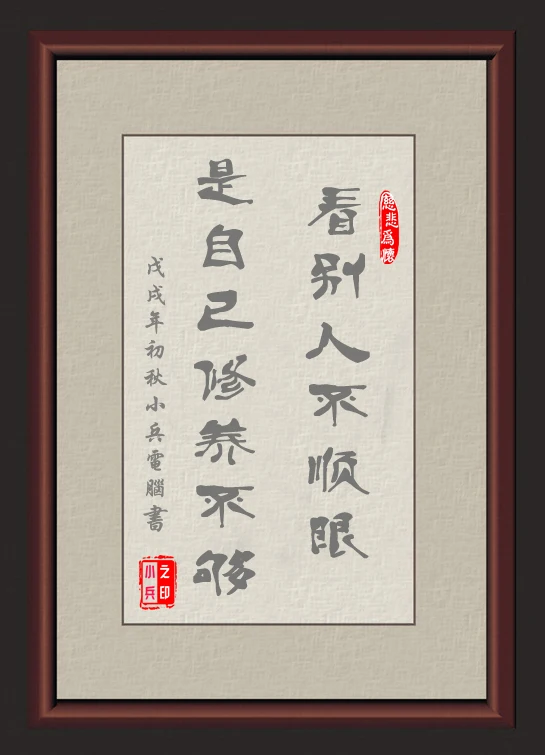 慈悲為懷
看别人不顺眼
是自己修养不够
戊戌年初秋小兵電腦書
小兵之印